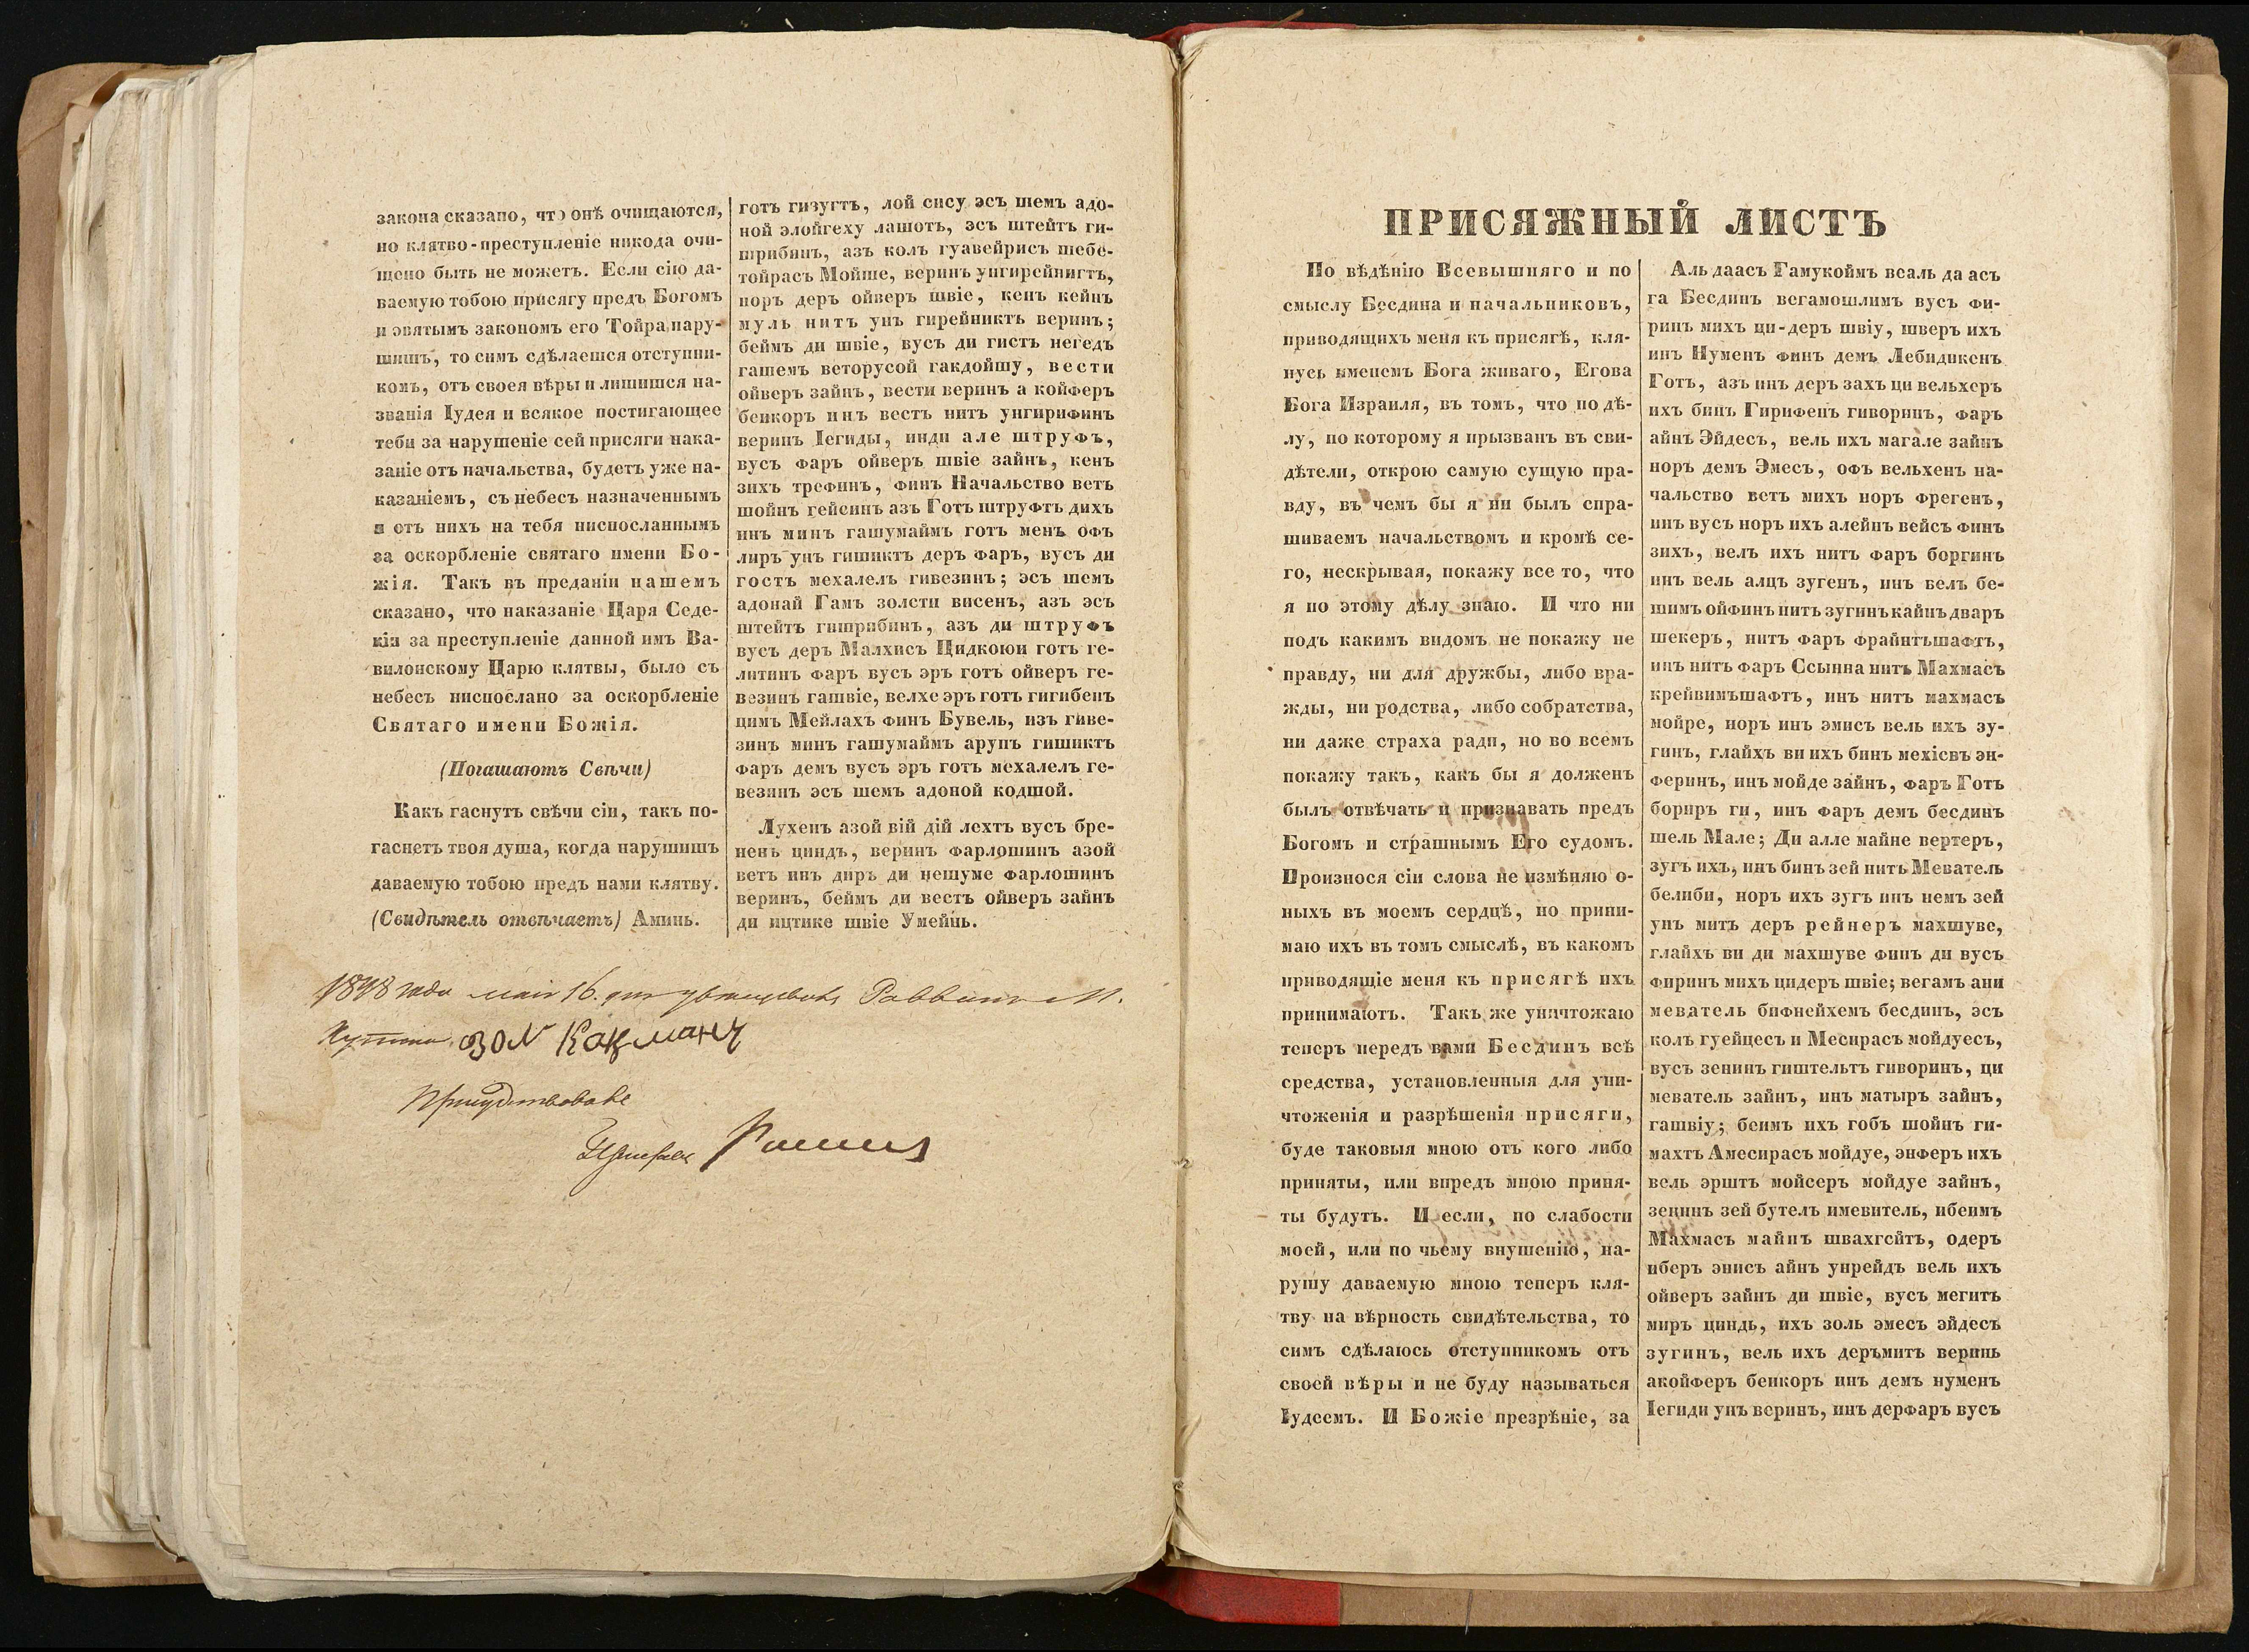 закона сказано, что онѣ очищаются,
но клятво-преступленіе никода очи-
щено быть не можетъ. Если сію да-
ваемую тобою присягу предъ Богомъ
и святымъ закономъ его Тойра нару-
шишъ, то симъ сдѣлаешся отступни-
комъ, отъ своея вѣры и лишишся на-
званія Іудея и всякое постигающее
тебя за нарушеніе сей присяги нака-
заніе отъ начальства, будетъ уже на-
казаніемъ, съ небесъ назначеннымъ
и отъ нихъ на тебя ниспосланнымъ
за оскорбленіе святаго имени Бо-
жія. Такъ въ преданіи нашемъ
сказано, что наказаніе Царя Седе-
кіи за преступленіе данной имъ Ва-
вилонскому Царю клятвы, было съ
небесъ ниспослано за оскорбленіе
Святаго имени Божія.
(Погашаютъ Свѣчи)
Какъ гаснутъ свѣчи сіи, такъ по-
гаснетъ твоя душа, когда нарушишъ
даваемую тобою предъ нами клятву.
(Свидѣтель отвѣчаетъ) Аминь.
готъ гизугтъ, лой сису эсъ шемъ адо-
ной элойгеху лашотъ, эсъ штейтъ ги-
шрибинъ, азъ колъ гуавейрисъ шебе-
тойрасъ Мойше, веринъ унгирейнигтъ,
норъ деръ ойверъ швіе, кенъ кейнъ
муль нитъ унъ гирейниктъ веринъ;
беймъ ди швіе, вусъ ди гистъ негедъ
гашемъ веторусой гакдойшу, вести
ойверъ зайнъ, вести веринъ а койферъ
беикоръ инъ вестъ нитъ унгирифинъ
веринъ Іегиды, инди але штруфъ,
вусъ фаръ ойверъ швіе зайнъ, кенъ
зихъ трефинъ, финъ Начальство ветъ
шойнъ гейсинъ азъ Готъ штруфтъ дихъ
инъ минъ гашумаймъ готъ менъ офъ
лиръ унъ гишиктъ деръ фаръ, вусъ ди
гостъ мехалелъ гивезинъ; эсъ шемъ
адонай Гамъ золсти висенъ, азъ эсъ
штейтъ гишрибинъ, азъ ди штруфъ
вусъ деръ Малхисъ Цидкоюи готъ ге-
литинъ фаръ вусъ эръ готъ ойверъ ге-
везинъ гашвіе, велхе эръ готъ гигибенъ
цимъ Мейлахъ финъ Бувель, изъ гиве-
зинъ минъ гашумаймъ арупъ гишиктъ
фаръ демъ вусъ эръ готъ мехалелъ ге-
везинъ эсъ шемъ адоной кодшой.
Лухенъ азой вій дій лехтъ вусъ бре-
ненъ циндъ, веринъ фарлошинъ азой
ветъ инъ диръ ди нешуме фарлошинъ
веринъ, беймъ ди вестъ ойверъ зайнъ
ди ицтике швіе Умейнъ.
1848 года мая 16. дня Раввинъ М.
Присудствовалъ
ПРИСЯЖНЫЙ ЛИСТЪ
По вѣдѣнію Всевышняго и по
смыслу Бесдина и начальниковъ,
приводящихъ меня къ присягѣ, кля-
нусь именемъ Бога живаго, Егова
Бога Израиля, въ томъ, что по дѣ-
лу, по которому я призванъ въ сви-
дѣтели, открою самую сущую пра-
вду, въ чемъ бы я ни былъ спра-
шиваемъ начальствомъ и кромѣ се-
го, нескрывая, покажу все то, что
я по этому дѣлу знаю. И что ни
подъ какимъ видомъ не покажу не
правду, ни для дружбы, либо вра-
жды, ни родства, либо собратства,
ни даже страха ради, но во всемъ
покажу такъ, какъ бы я долженъ
былъ отвѣчать и признавать предъ
Богомъ и страшнымъ Его судомъ.
Произнося сіи слова не измѣняю о-
ныхъ въ моемъ сердцѣ, но прини-
маю ихъ въ томъ смыслѣ, въ какомъ
приводящіе меня къ присягѣ ихъ
принимаютъ. Такъ же уничтожаю
теперъ передъ вами Бесдинъ всѣ
средства, установленныя для уни-
чтоженія и разрѣшенія присяги,
буде таковыя мною отъ кого либо
приняты, или впредъ мною приня-
ты будутъ. И если, по слабости
моей, или по чьему внушенію, на-
рушу даваемую мною теперъ кля-
тву на вѣрность свидѣтельства, то
симъ сдѣлаюсь отступникомъ отъ
своей вѣры и не буду называться
Іудеемъ. И Божіе презрѣніе, за
Аль даасъ Гамукоймъ всаль да асъ
га Бесдинъ вегамошлимъ вусъ фи-
ринъ михъ ци-деръ швіу, шверъ ихъ
инъ Нуменъ финъ демъ Лебидикенъ
Готъ, азъ инъ деръ захъ ци вельхеръ
ихъ бинъ Гирифенъ гиворинъ, фаръ
айнъ Эйдесъ, вель ихъ магале зайнъ
норъ демъ Эмесъ, офъ вельхенъ на-
чальство ветъ михъ норъ фрегенъ,
инъ вусъ норъ ихъ алейнъ вейсъ финъ
зихъ, велъ ихъ нитъ фаръ боргинъ
инъ вель алцъ зугенъ, инъ велъ бе-
шимъ ойфинъ нитъ зугинъ кайнъ дваръ
шекеръ, нитъ фаръ фрайнтъшафтъ,
инъ нитъ фаръ Ссынна нитъ Махмасъ
крейвимъшафтъ, инъ нитъ махмасъ
мойре, норъ инъ эмисъ вель ихъ зу-
гинъ, глайхъ ви ихъ бинъ мехіевъ эн-
феринъ, инъ мойде зайнъ, фаръ Готъ
бориръ ги, инъ фаръ демъ бесдинъ
шель Мале; Ди алле майне вертеръ,
зугъ ихъ, инъ бинъ зей нитъ Меватель
белиби, норъ ихъ зугъ инъ немъ зей
унъ митъ деръ рейнеръ махшуве,
глайхъ ви ди махшуве финъ ди вусъ
фиринъ михъ цидеръ швіе; вегамъ ани
меватель бифнейхемъ бесдинъ, эсъ
колъ гуейцесъ и Месирасъ мойдуесъ,
вусъ зенинъ гиштельтъ гиворинъ, ци
меватель зайнъ, инъ матыръ зайнъ,
гашвіу; беимъ ихъ гобъ шойнъ ги-
махтъ Амесирасъ мойдуе, энферъ ихъ
вель эрштъ мойсеръ мойдуе зайнъ,
зенинъ зей бутелъ имевитель, ибеимъ
Махмасъ майнъ швахгейтъ, одеръ
иберъ энисъ айнъ унрейдъ вель ихъ
ойверъ зайнъ ди швіе, вусъ мегитъ
миръ циндъ, ихъ золь эмесъ эйдесъ
зугинъ, вель ихъ деръмитъ веринъ
акойферъ беикоръ инъ демъ нуменъ
Іегиди унъ веринъ, инъ дерфаръ вусъ